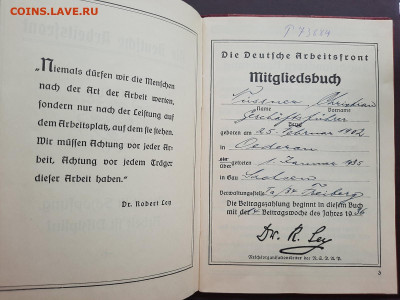 COINS.SAY.RU
„Niemals dürfen wir die Menschen
nach der Art der Arbeit werten,
sondern nur nach der Leistung auf
dem Arbeitsplatz, auf dem sie stehen.
Wir müssen Achtung vor jeder Ar-
beit, Achtung vor jedem Träger
dieser Arbeit haben.“
Dr. Robert Ley
Die Deutsche Arbeitsfront
Mitgliedsbuch
Name Vorname
Geschäftsführer
Beruf
geboren am 25. Februar 1902
in Oederan
1. Januar 1935
in Gau Sachsen
Verwaltungsstelle Freiberg
Die Beitragszahlung beginnt in diesem Buch
mit der Beitragswoche des Jahres 1936
Dr. R. Ley
Reichsorganisationsleiter der N.S.D.A.P.
3